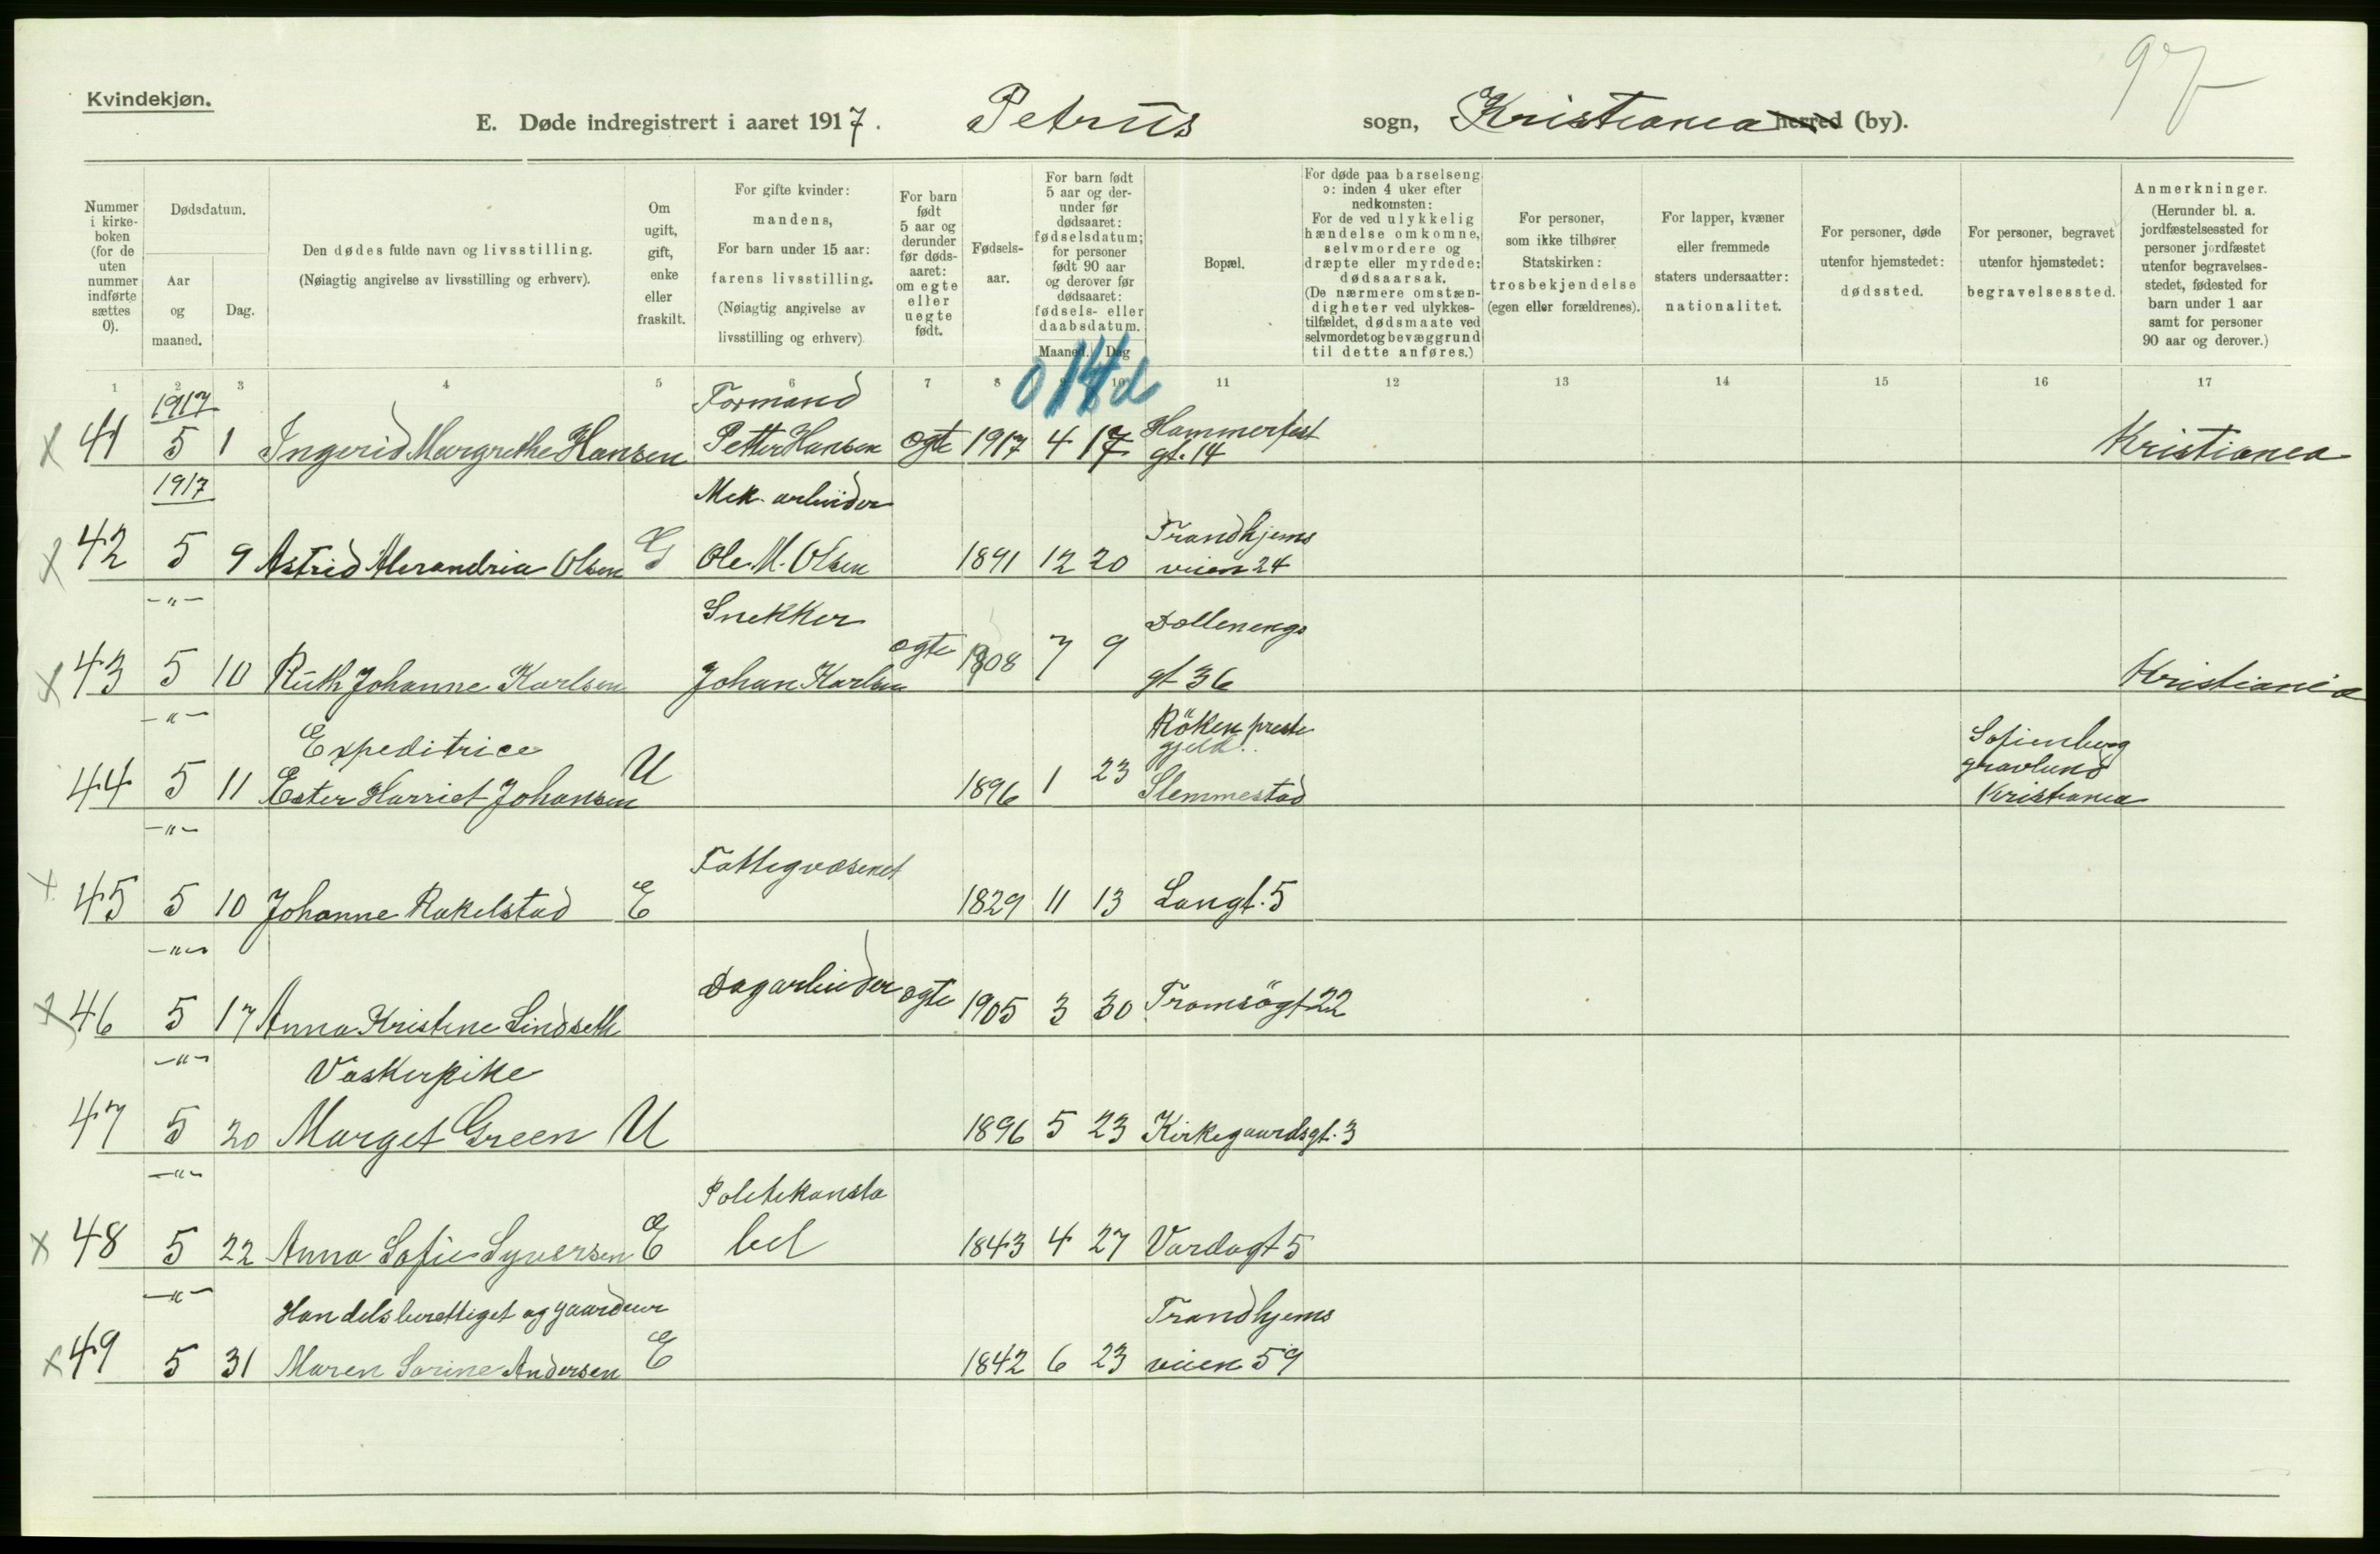 97
Kvindekjøn.
E. Døde indregistrert i aaret 1917. Petrus sogn, Kristiania herred (by).
Nummer i kirke- boken (for de uten nummer indførte sættes 0).
Dødsdatum.
Aar og maaned.
Dag.
Den dødes fulde navn og livsstilling.
(Nøiagtig angivelse av livsstilling og erhverv).
Om ugift, gift, enke eller fraskilt.
For gifte kvinder: mandens, For barn under 15 aar: farens livsstilling. (Nøiagtig angivelse av livsstilling og erhverv)
For barn født 5 aar og derunder før døds- aaret: om egte eller uegte født.
Fødsels- aar.
For barn født 5 aar og der- under før dødsaaret: fødselsdatum; for personer født 90 aar og derover før dødsaaret: fødsels- eller daabsdatum.
Maaned. Dag
Bopæl.
For døde paa barselseng ɔ: inden 4 uker efter nedkomsten: For de ved ulykkelig hændelse omkomne, selvmordere og dræpte eller myrdede: dødsaarsak. (De nærmere omstæn- digheter ved ulykkes- tilfældet, dødsmaate ved selvmordet og bevæggrund til dette anføres.)
For personer, som ikke tilhører Statskirken: trosbekjendelse (egen eller forældrenes).
For lapper, kvæner eller fremmede staters undersaatter: nationalitet.
For personer, døde utenfor hjemstedet: dødssted.
For personer, begravet utenfor hjemstedet: begravelsessted.
Anmerkninger. (Herunder bl. a. jordfæstelsessted for personer jordfæstet utenfor begravelses- stedet, fødested for barn under 1 aar samt for personer 90 aar og derover.)
1 2 3 4 5 6 7 8 9 10 11 12 13 14 15 16 17
1917 Formand
x 41 5 1 Ingerid Margrethe Hansen Petter Hansen egte 1917 4 17 Hammerfest gt. 14 Kristiania
1917 Mek. arbeider
x 42 5 9 Astrid Alexandria Olsen G Ole M. Olsen 1891 12 20 Trondhjems veien 24
-"- Snekker
x 43 5 10 Ruth Johanne Karlsen Johan Karlsen egte 1908 7 9 Dællenengs gt 36 Kristiania
-"- Expeditrice Röken preste gjeld. Sofienberg gravlund
44 5 11 Ester Harriet Johansen U 1896 1 23 Slemmestad Kristiania
-"- Fattigvæsenet
x 45 5 10 Johanne Rakelstad E 1829 11 13 Langt. 5
-"- Dagarbeider
x 46 5 17 Anna Kristine Lindseth egte 1905 3 30 Tromsögt 22
-"- Vaskerpike
47 5 20 Marget Green U 1896 5 23 Kirkegaardsgt. 3
-"- Politikonsta
x 48 5 22 Anna Sofie Syversen E bel 1843 4 27 Vardøgt 5
-"- Handelsberettiget og gaardeier Trondhjems
x 49 5 31 Maren Sorine Andersen E 1842 6 23 veien 59